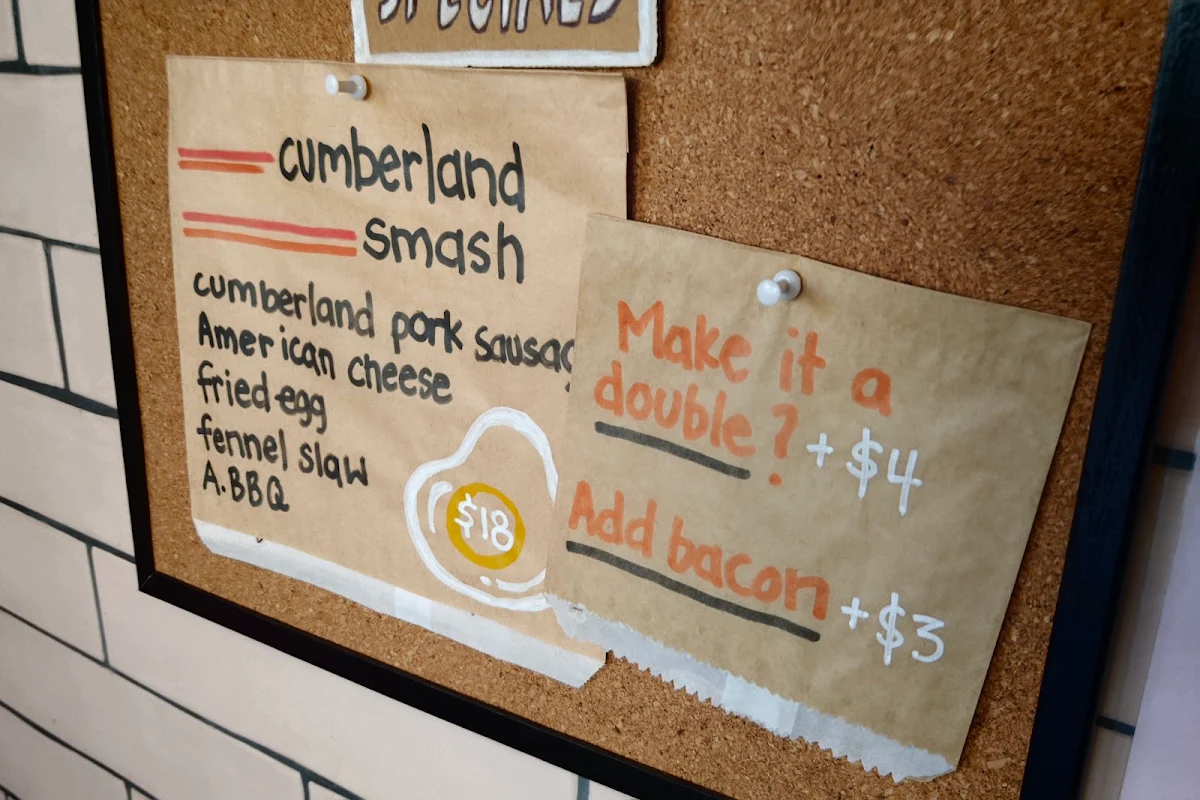 SPECIALS
cumberland
smash
cumberland pork sausag
American cheese
fried egg
fennel slaw
A.BBQ
$18
Make it a
double? +$4
Add bacon +$3